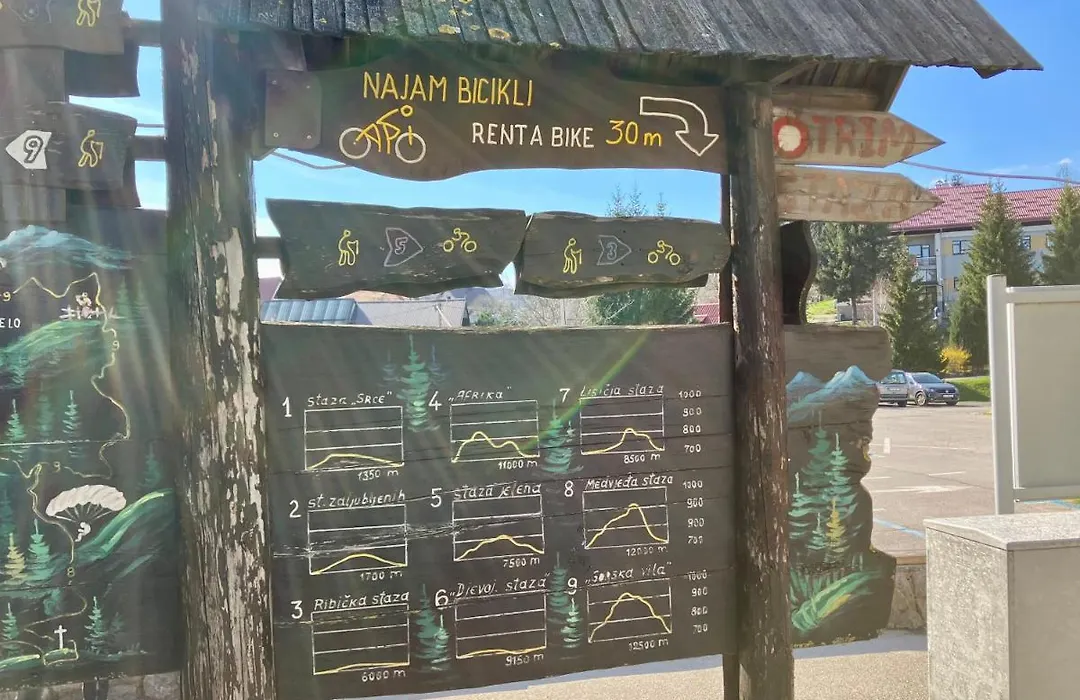 NAJAM BICIKLI
RENTA BIKE 30m
TRIM
9
5
3
ELO
1 STAZA „SRCE"
1350 m
2 ST. ZALJUBLJENIH
1700 m
3 RIBIČKA STAZA
6000 m
4 „AFRIKA"
11000 m
5 STAZA JELENA
7500 m
6 „DJEVOJ. STAZA"
9150 m
7 LISIČJA STAZA
1000
900
800
700
8500 m
8 MEDVJEĐA STAZA
1000
900
900
700
12000 m
9 „GORSKA VILA"
1000
900
800
700
12500 m